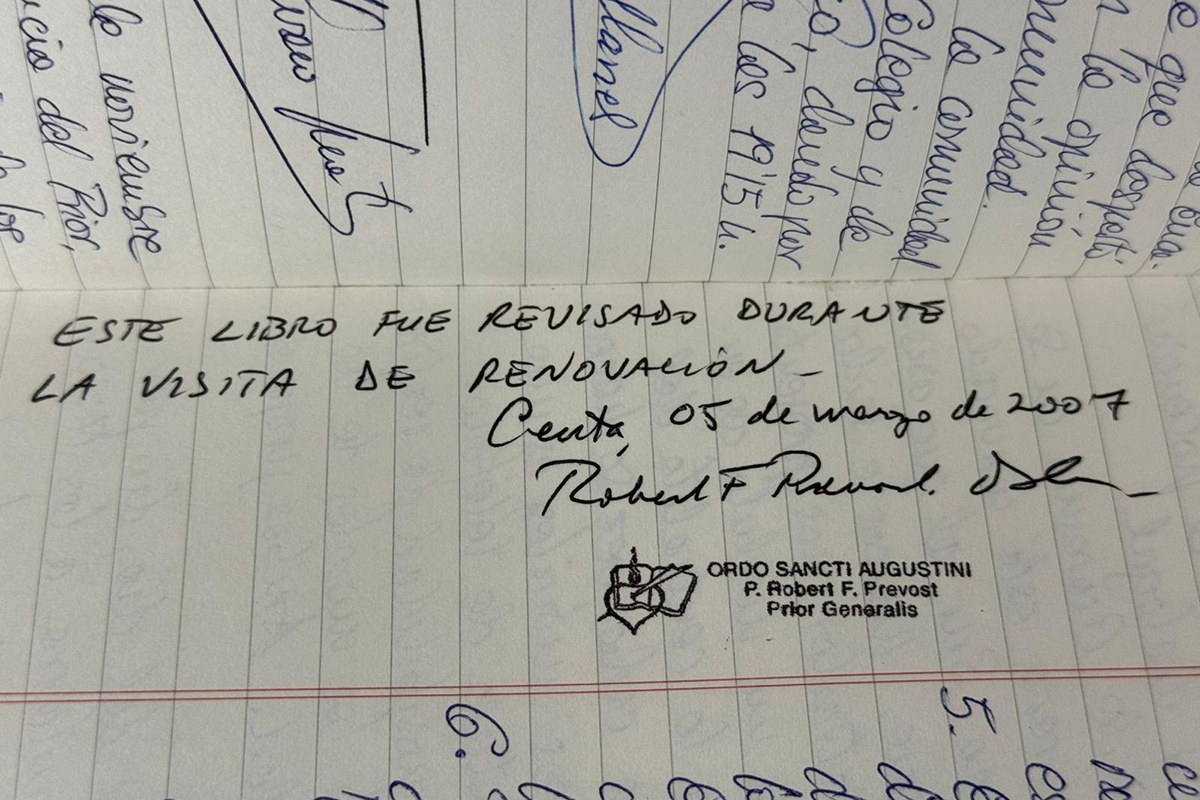 opinión
munidad.
la comunidad
y de
dando por
los 19'15 h.
llanes
noviembre
del Prior,
ESTE LIBRO FUE REVISADO DURANTE
LA VISITA DE RENOVACIÓN –
Ceuta, 05 de marzo de 2007
Robert F Prevost. OSA
ORDO SANCTI AUGUSTINI
P. Robert F. Prevost
Prior Generalis
5.
6.